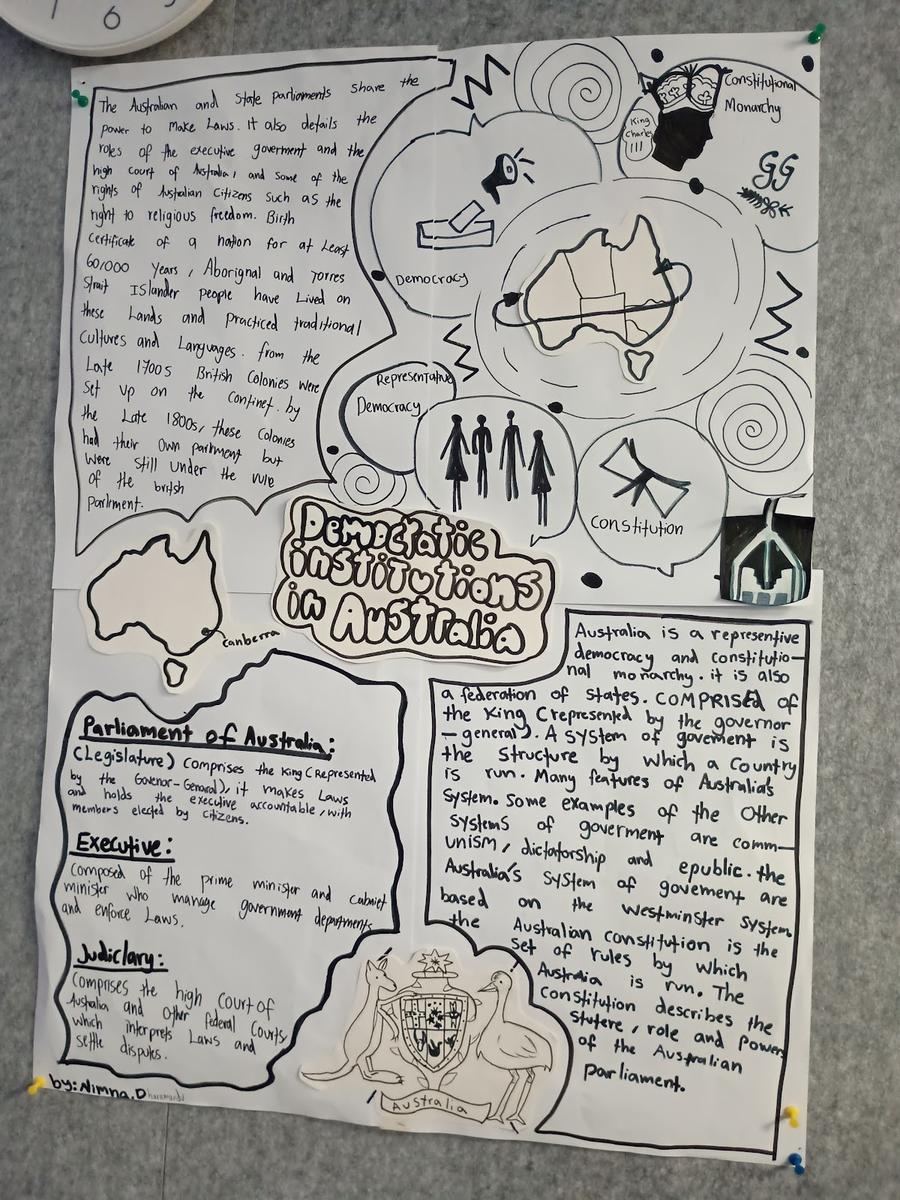 6
The Australian and State parliaments share the
power to Make Laws. It also details the
roles of the executive goverment and the
high court of Australia, and some of the
rights of Australian Citizens such as the
right to religious freedom. Birth
Certificate of a nation for at Least
60,000 Years, Aborignal and Torres
Strait ISlander people have Lived on
these Lands and practiced traditional
Cultures and Languages. from the
Late 1700s British Colonies were
Set up on the Continet. by
the Late 1800s, these Colonies
had their Own parkment but
Were Still under the rule
of the british
Parkment.
Democracy
Constitutional
Monarchy
King
Charles
III
GG
Representative
Democracy
Constitution
Democratic
institutions
in Australia
Canberra
Parliament of Australia:
(Legislature) Comprises the King (Represented
by the Govenor-General), it makes Laws
and holds the executive accountable, with
members elected by citizens.
Executive:
Composed of the prime minister and cabniet
minister who manage government departments
and enforce Laws.
Judiclary:
Comprises the high Court of
Australia and other federal Courts,
which interprets Laws and
settle disputes.
by: Nimna.D
Australia is a representive
democracy and constitutio-
nal monarchy. it is also
a federation of States. COMPRISED of
the King (represented by the governor
-general). A System of goverment is
the Structure by which a Country
is run. Many features of Australia's
System. Some examples of the Other
Systems of goverment are comm-
unism, dictatorship and epublic. the
Australia's System of govement are
based on the Westminster System.
the Australian constitution is the
set of rules by which
Australia is run. The
Constitution describes the
stutere, role and Powers
of the Australian
parliament.
Australia